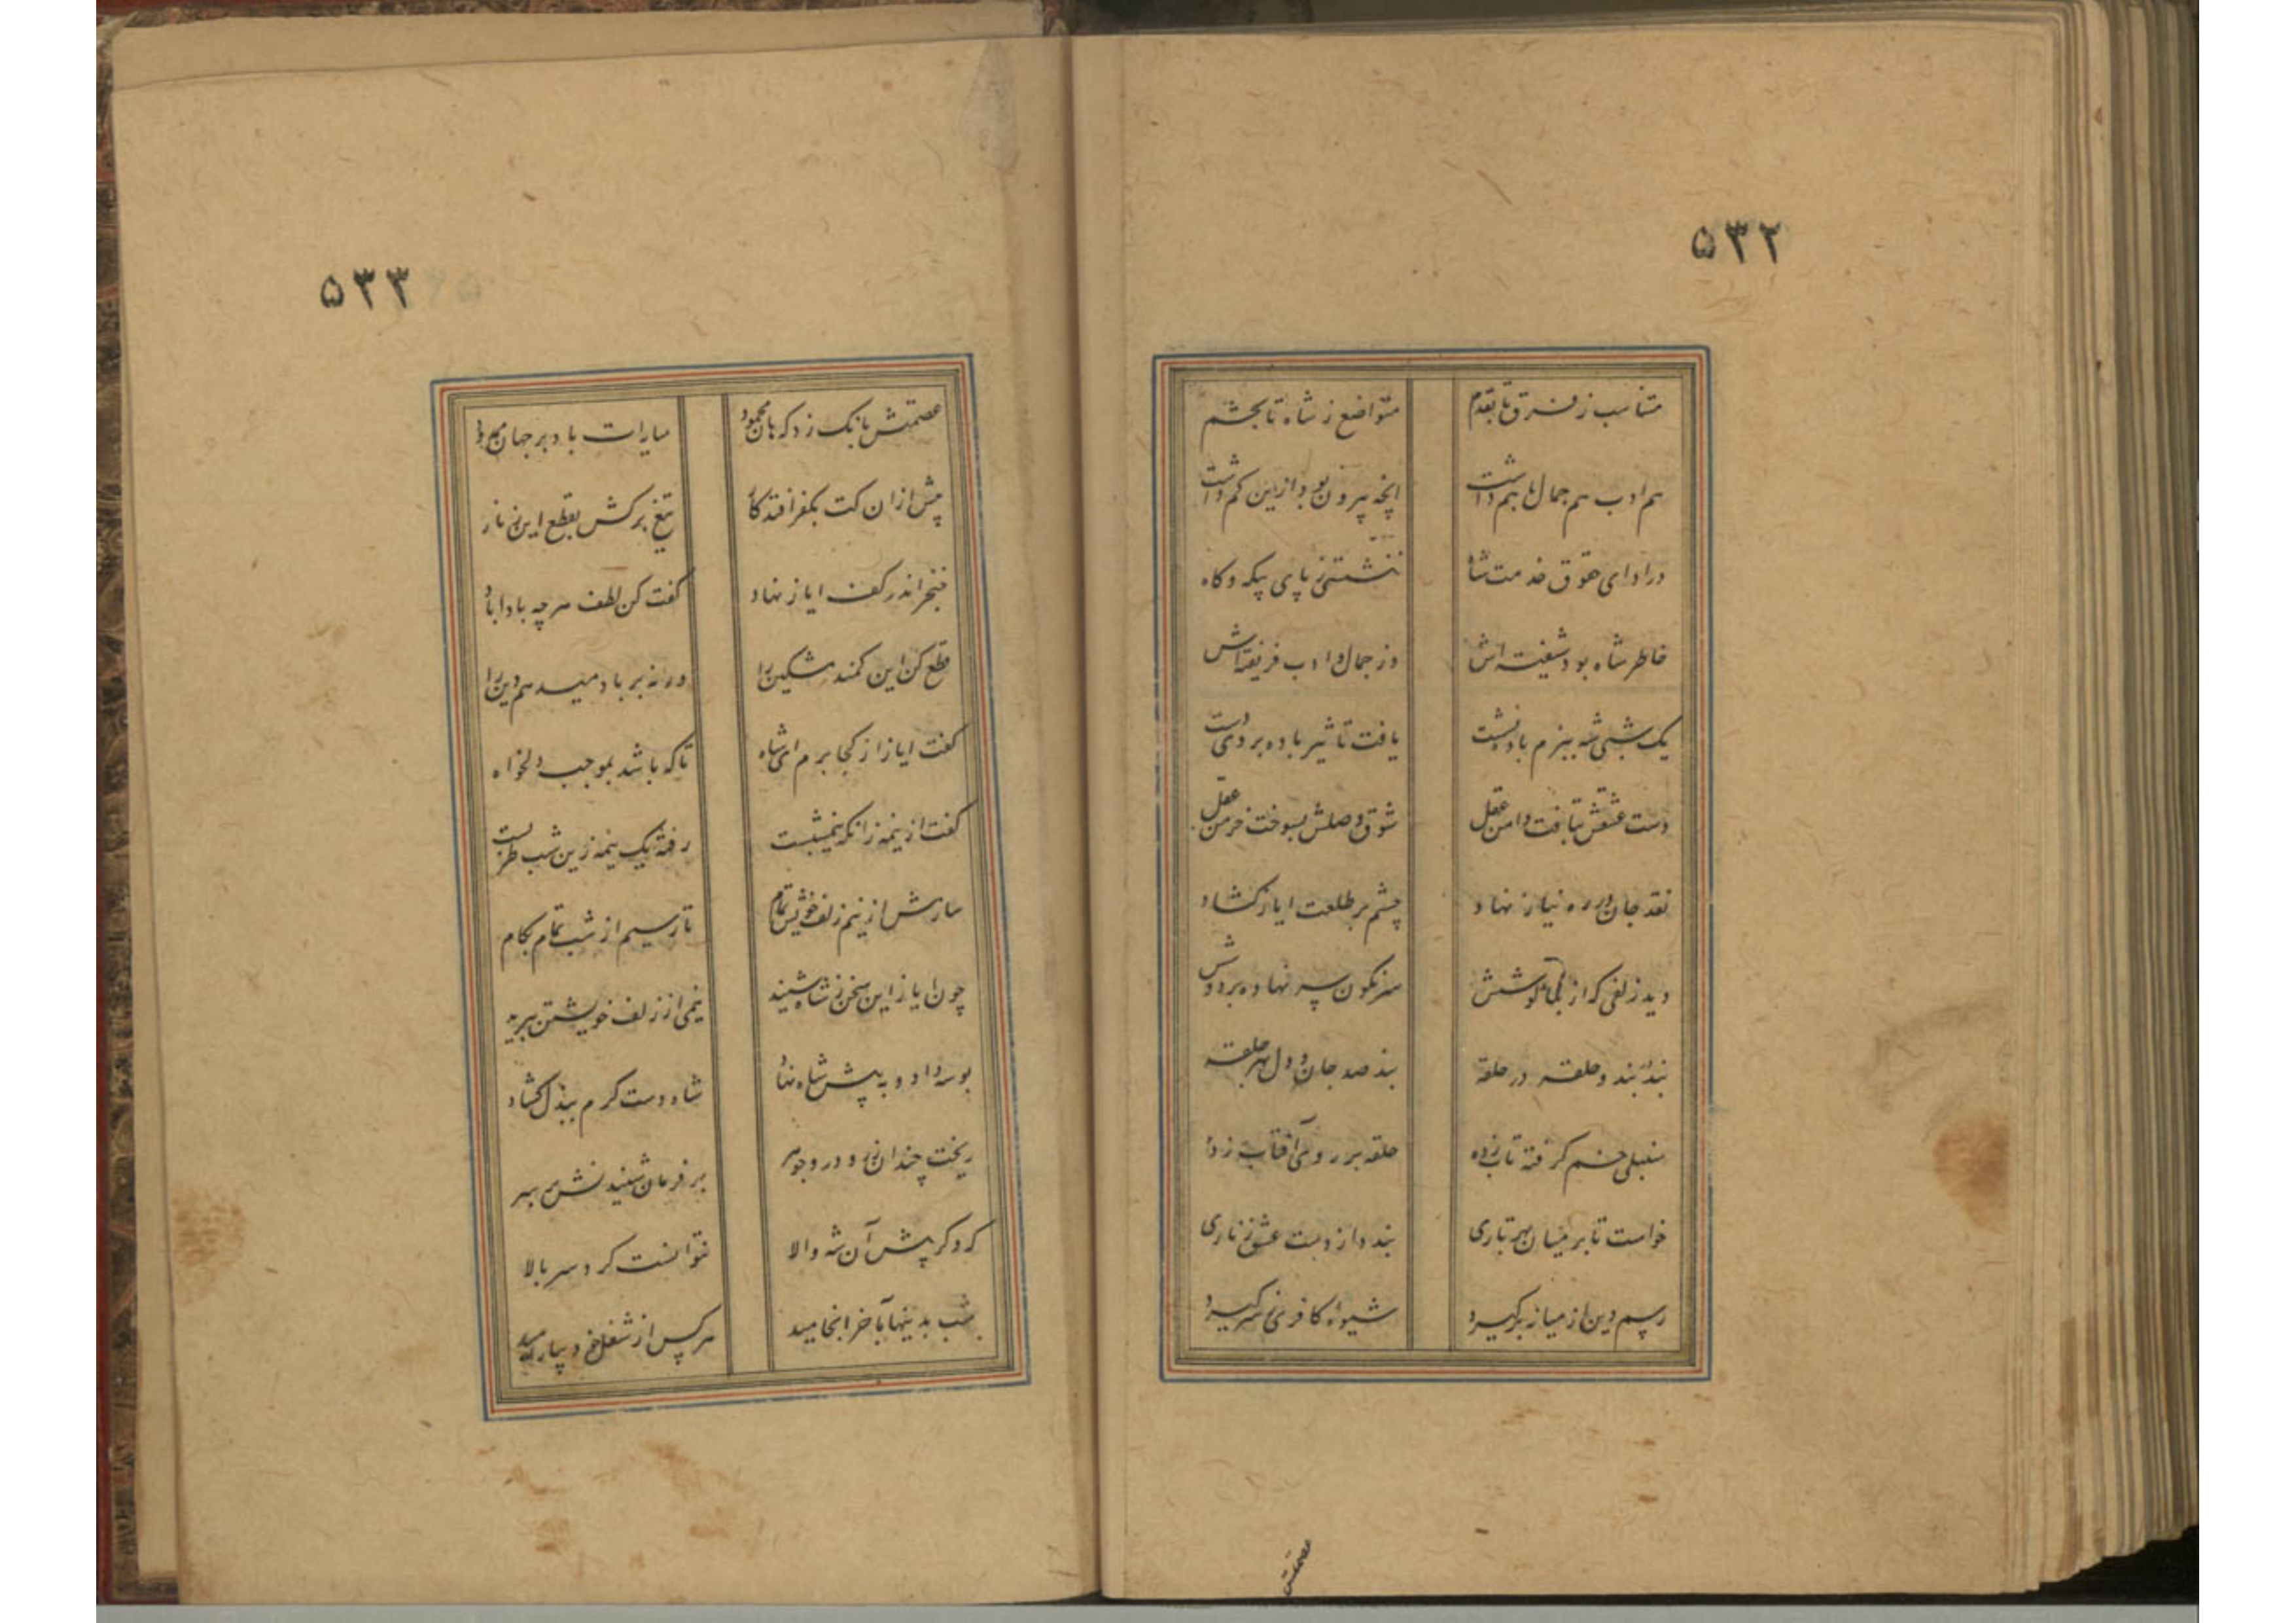 ۵۳۲
متناسب ز فرق تا بقدم متواضع ز شاه تا بحشم
هم ادب هم جمال با هم داشت انچه بیرون بود ازین کم داشت
در ادای حقوق خدمت شاه ننشستی ز پای بیکه و کاه
خاطر شاه بود شیفته اش وز جمال و ادب فریفته اش
یک شبی شه ببزم باده نشست یافت تاثیر باده بر وی دست
دست عشقش بتافت دامن عقل شوق وصلش بسوخت خرمن عقل
نقد جان در ره نیاز نهاد چشم بر طلعت ایاز کشاد
دید زلفی که از بناکوشش سرنکون سر نهاده بر دوشش
بند بر بند و حلقه در حلقه بند صد جان و دل بهر حلقه
سنبلی خم کرفته تاب زده حلقه بر روی آفتاب زده
خواست تا بر میان بهر تاری بندد از دست عشق زناری
رسم دین از میانه برکیرد شیوه کافری ز سر کیرد
عصمتش
۵۳۳
عصمتش بانک زد که هان محمود باد بر جهان
پیش ازان کت بکفر افتد کار تیغ برکش بقطع این زنار
خنجر اندر کف ایاز نهاد کفت کن لطف هرچه باداباد
قطع کن این کمند مشکین را ورنه بر باد میدهم دین را
کفت ایاز از کجا برم ای شاه تا که باشد بموجب دلخواه
کفت از نیمه زانکه نیمشبست رفته یک نیمه زین شب طربست
سازش از نیم زلف خویش تمام تا رسیم از شب تمام بکام
چون ایاز این سخن ز شاه شنید نیمی از زلف خویشتن ببرید
بوسه داد و به پیش شاه نهاد شاه دست کرم ببذل کشاد
ریخت چندان زر و در و جوهر بر فرمان شنیدنش بر سر
که دکر پیش آن شه والا نتوانست کرد سر بالا
شب بدینها بآخر انجامید هر کس از شغل خود بیارامید